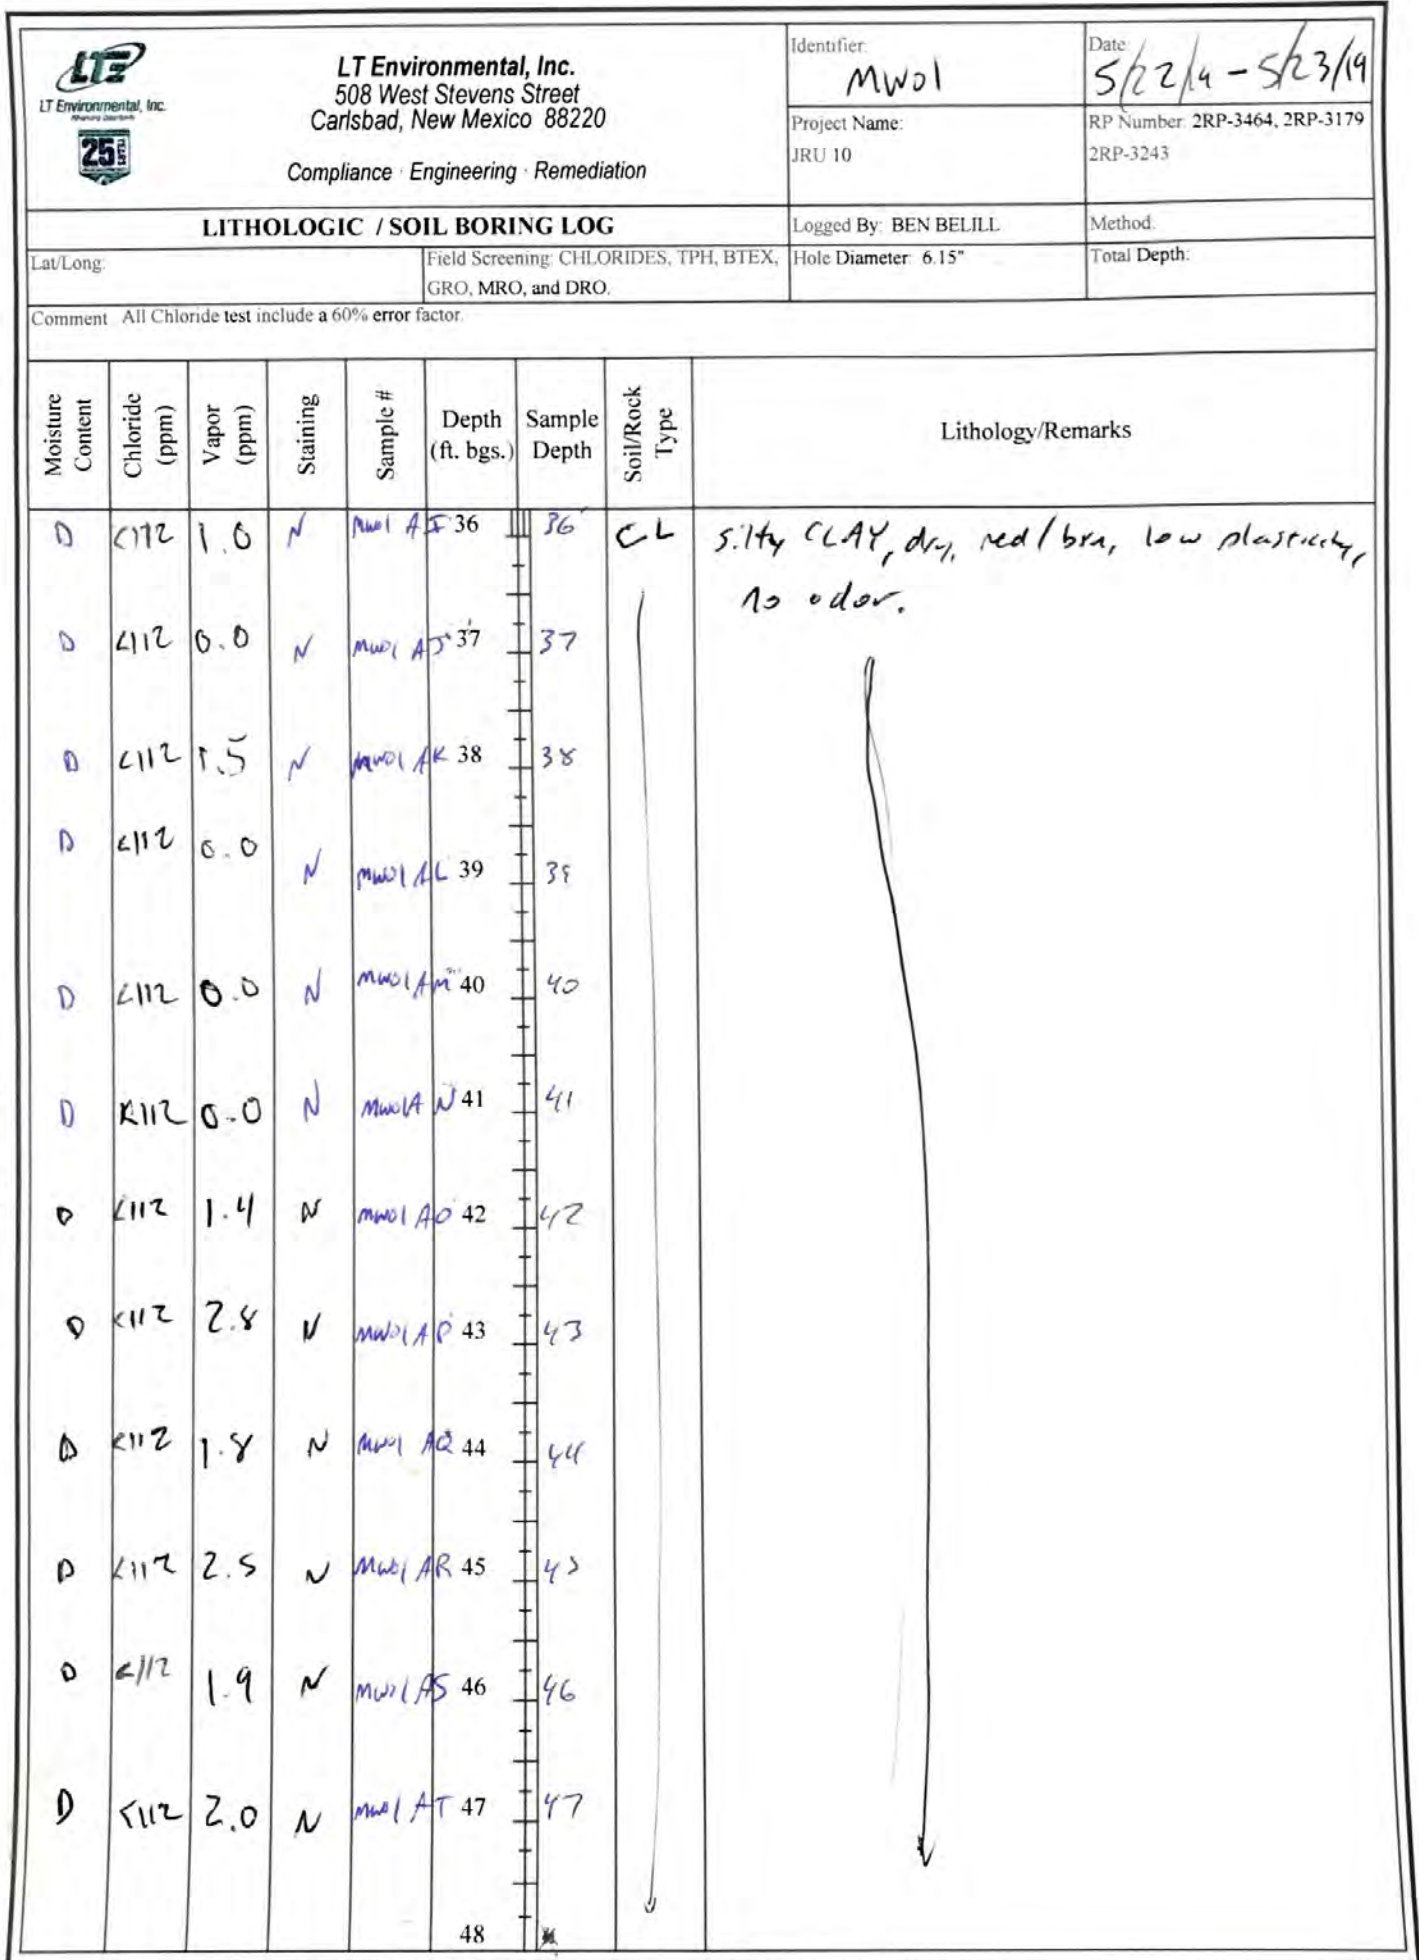 LTE
LT Environmental, Inc.
25
LT Environmental, Inc.
508 West Stevens Street
Carlsbad, New Mexico 88220
Compliance · Engineering · Remediation
Identifier:
MW01
Date:
5/22/19 - 5/23/19
Project Name:
JRU 10
RP Number: 2RP-3464, 2RP-3179
2RP-3243
LITHOLOGIC / SOIL BORING LOG
Logged By: BEN BELILL
Method:
Lat/Long:
Field Screening: CHLORIDES, TPH, BTEX,
GRO, MRO, and DRO.
Hole Diameter: 6.15"
Total Depth:
Comment: All Chloride test include a 60% error factor.
Moisture Content
Chloride (ppm)
Vapor (ppm)
Staining
Sample #
Depth (ft. bgs.)
Sample Depth
Soil/Rock Type
Lithology/Remarks
D <112 1.0 N MW01 AI 36 36' CL silty CLAY, dry, red/brn, low plasticity,
no odor.
D <112 0.0 N MW01 AJ 37 37
D <112 1.5 N MW01 AK 38 38
D <112 0.0 N MW01 AL 39 39
D <112 0.0 N MW01 AM 40 40
D <112 0.0 N MW01A N 41 41
D <112 1.4 N MW01 AO 42 42
D <112 2.8 N MW01 AP 43 43
D <112 1.8 N MW01 AQ 44 44
D <112 2.5 N MW01 AR 45 45
D <112 1.9 N MW01 AS 46 46
D <112 2.0 N MW01 AT 47 47
48